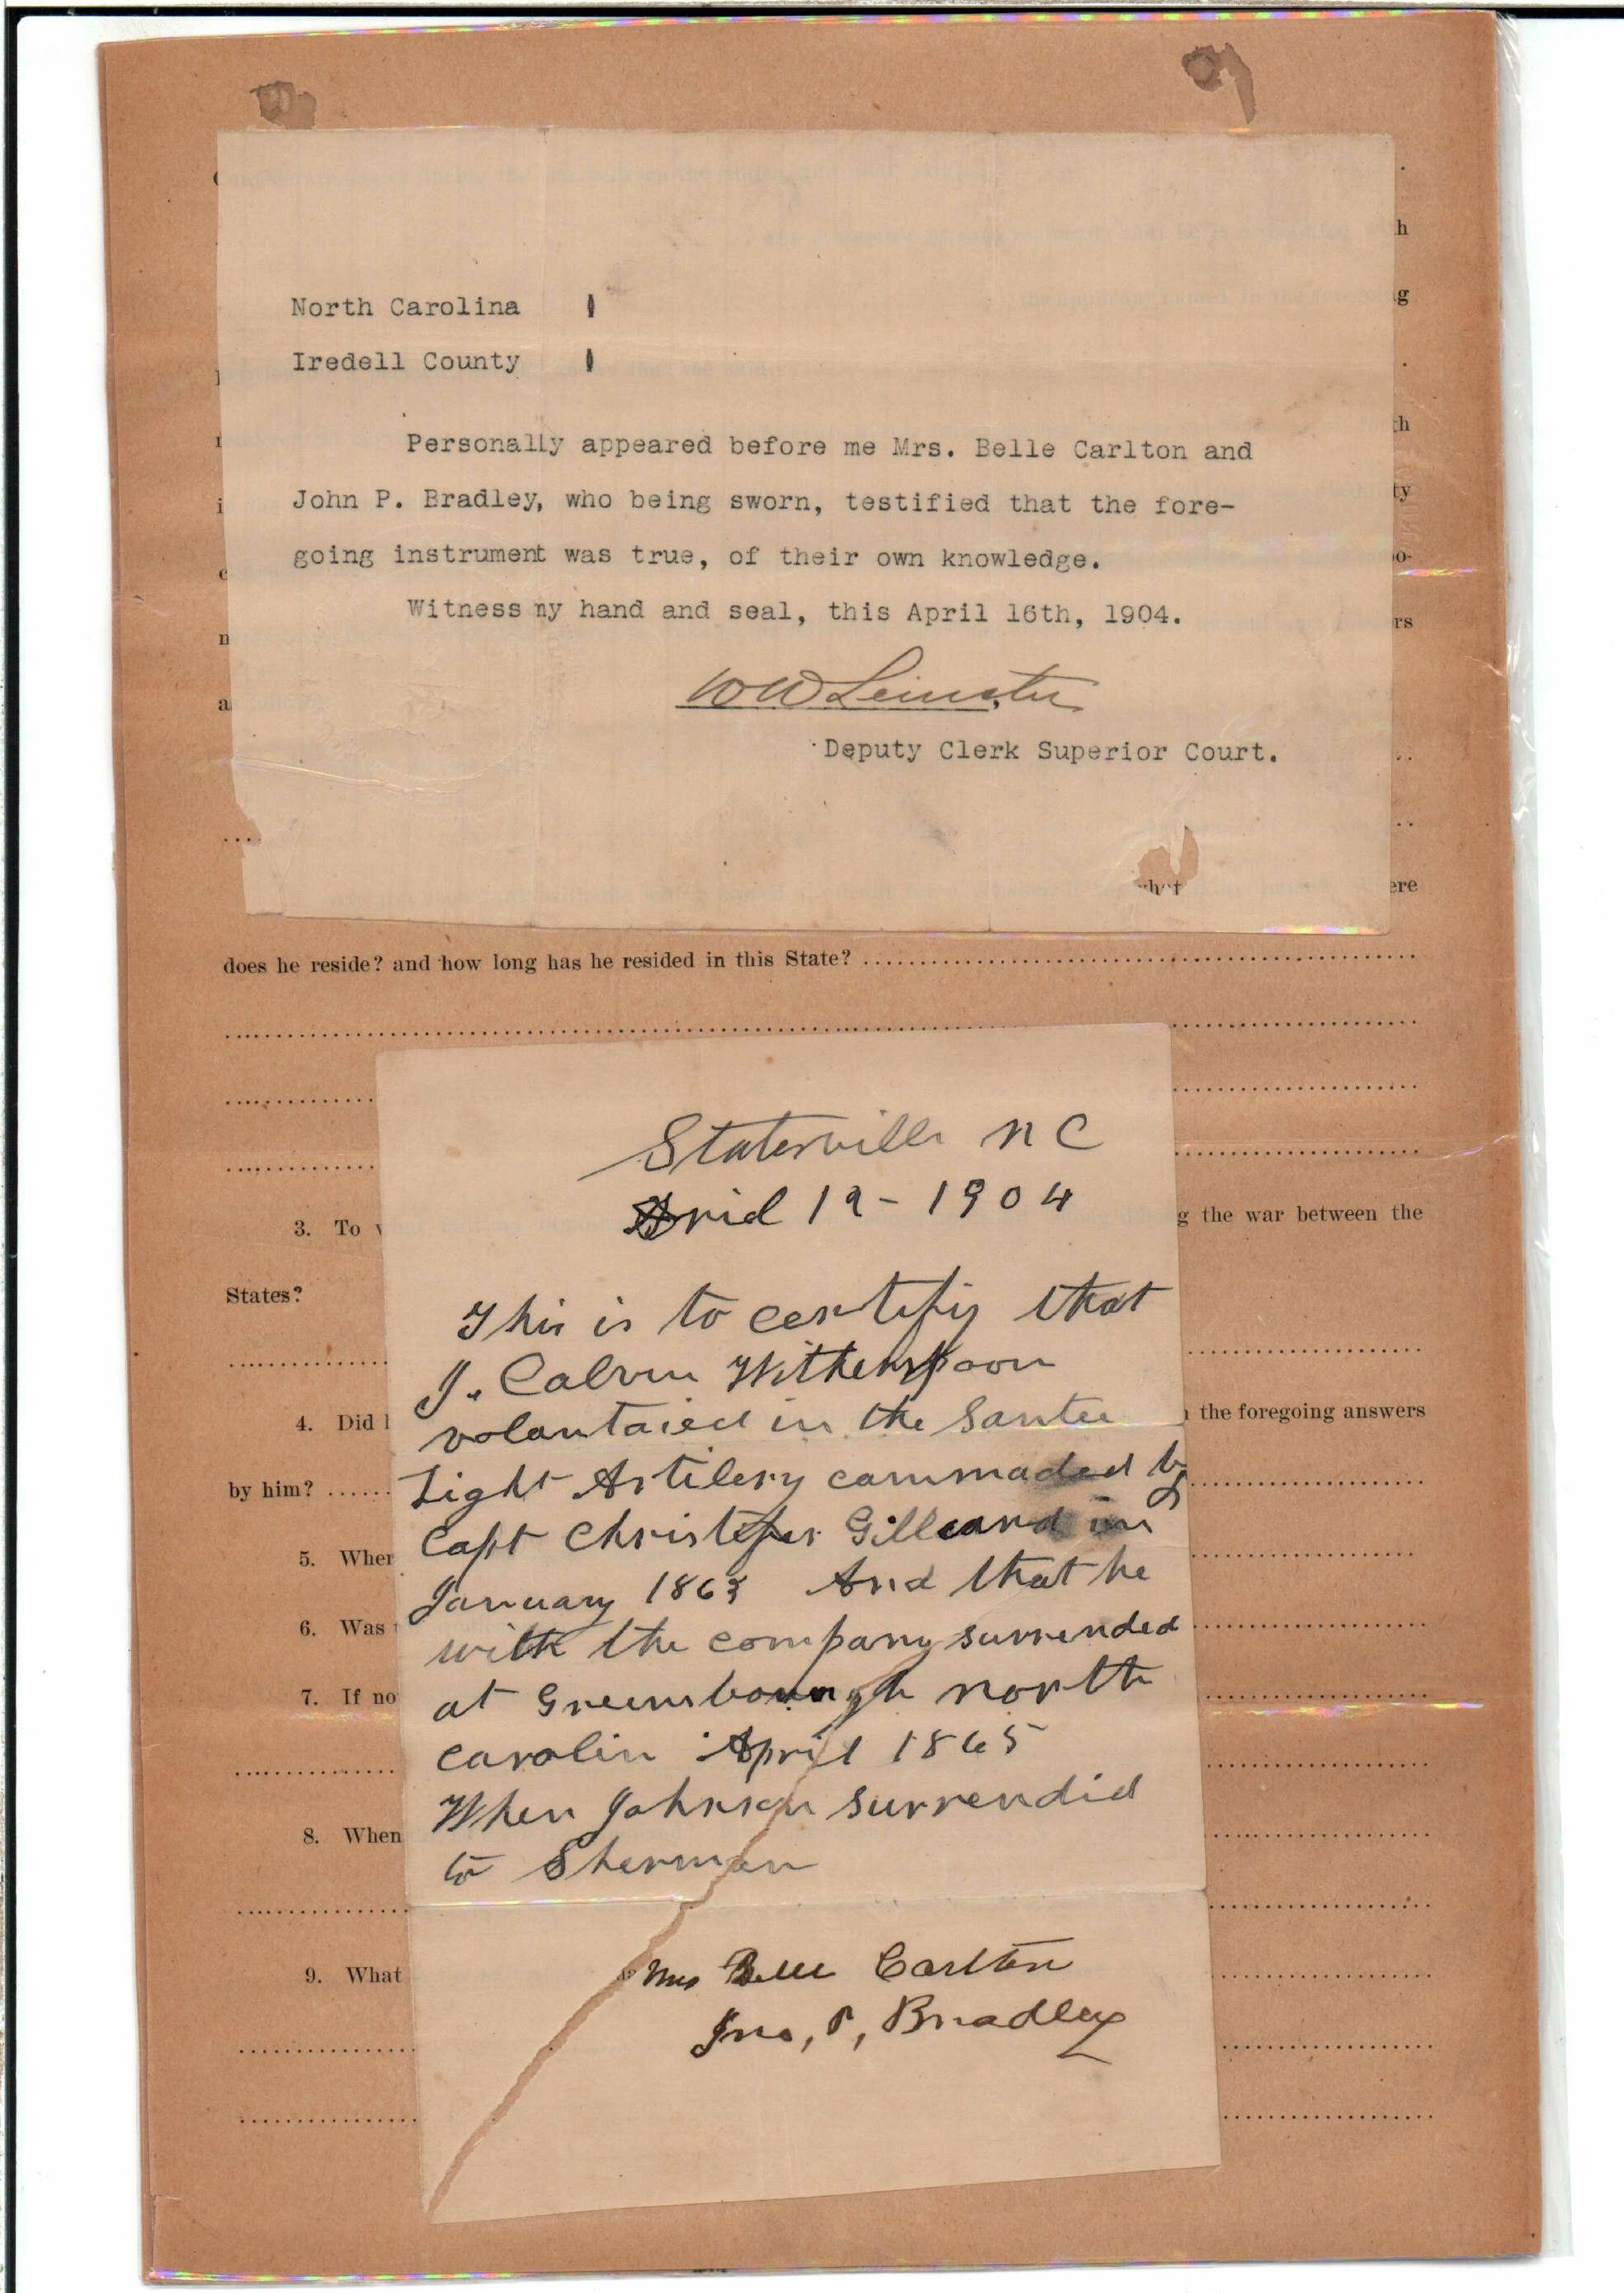 North Carolina
Iredell County
Personally appeared before me Mrs. Belle Carlton and
John P. Bradley, who being sworn, testified that the fore-
going instrument was true, of their own knowledge.
Witness my hand and seal, this April 16th, 1904.
W W Leinster
Deputy Clerk Superior Court.
ere
does he reside? and how long has he resided in this State?
Statesville N C
1904
3. To
g the war between the
States?
This is to certify that
J. Calvin Witherspoon
4. Did
the foregoing answers
volantaied in the Santee
by him?
Light Artilery cammaded by
5. When
Capt Christefer Gilleard in
January 1863 And that he
6. Was
with the company surrended
7. If no
at Greensbourgh north
carolin April 1865
8. When
When Johnson surrendid
to Sherman
9. What
Mrs Belle Carlton
Jno, P, Bradley